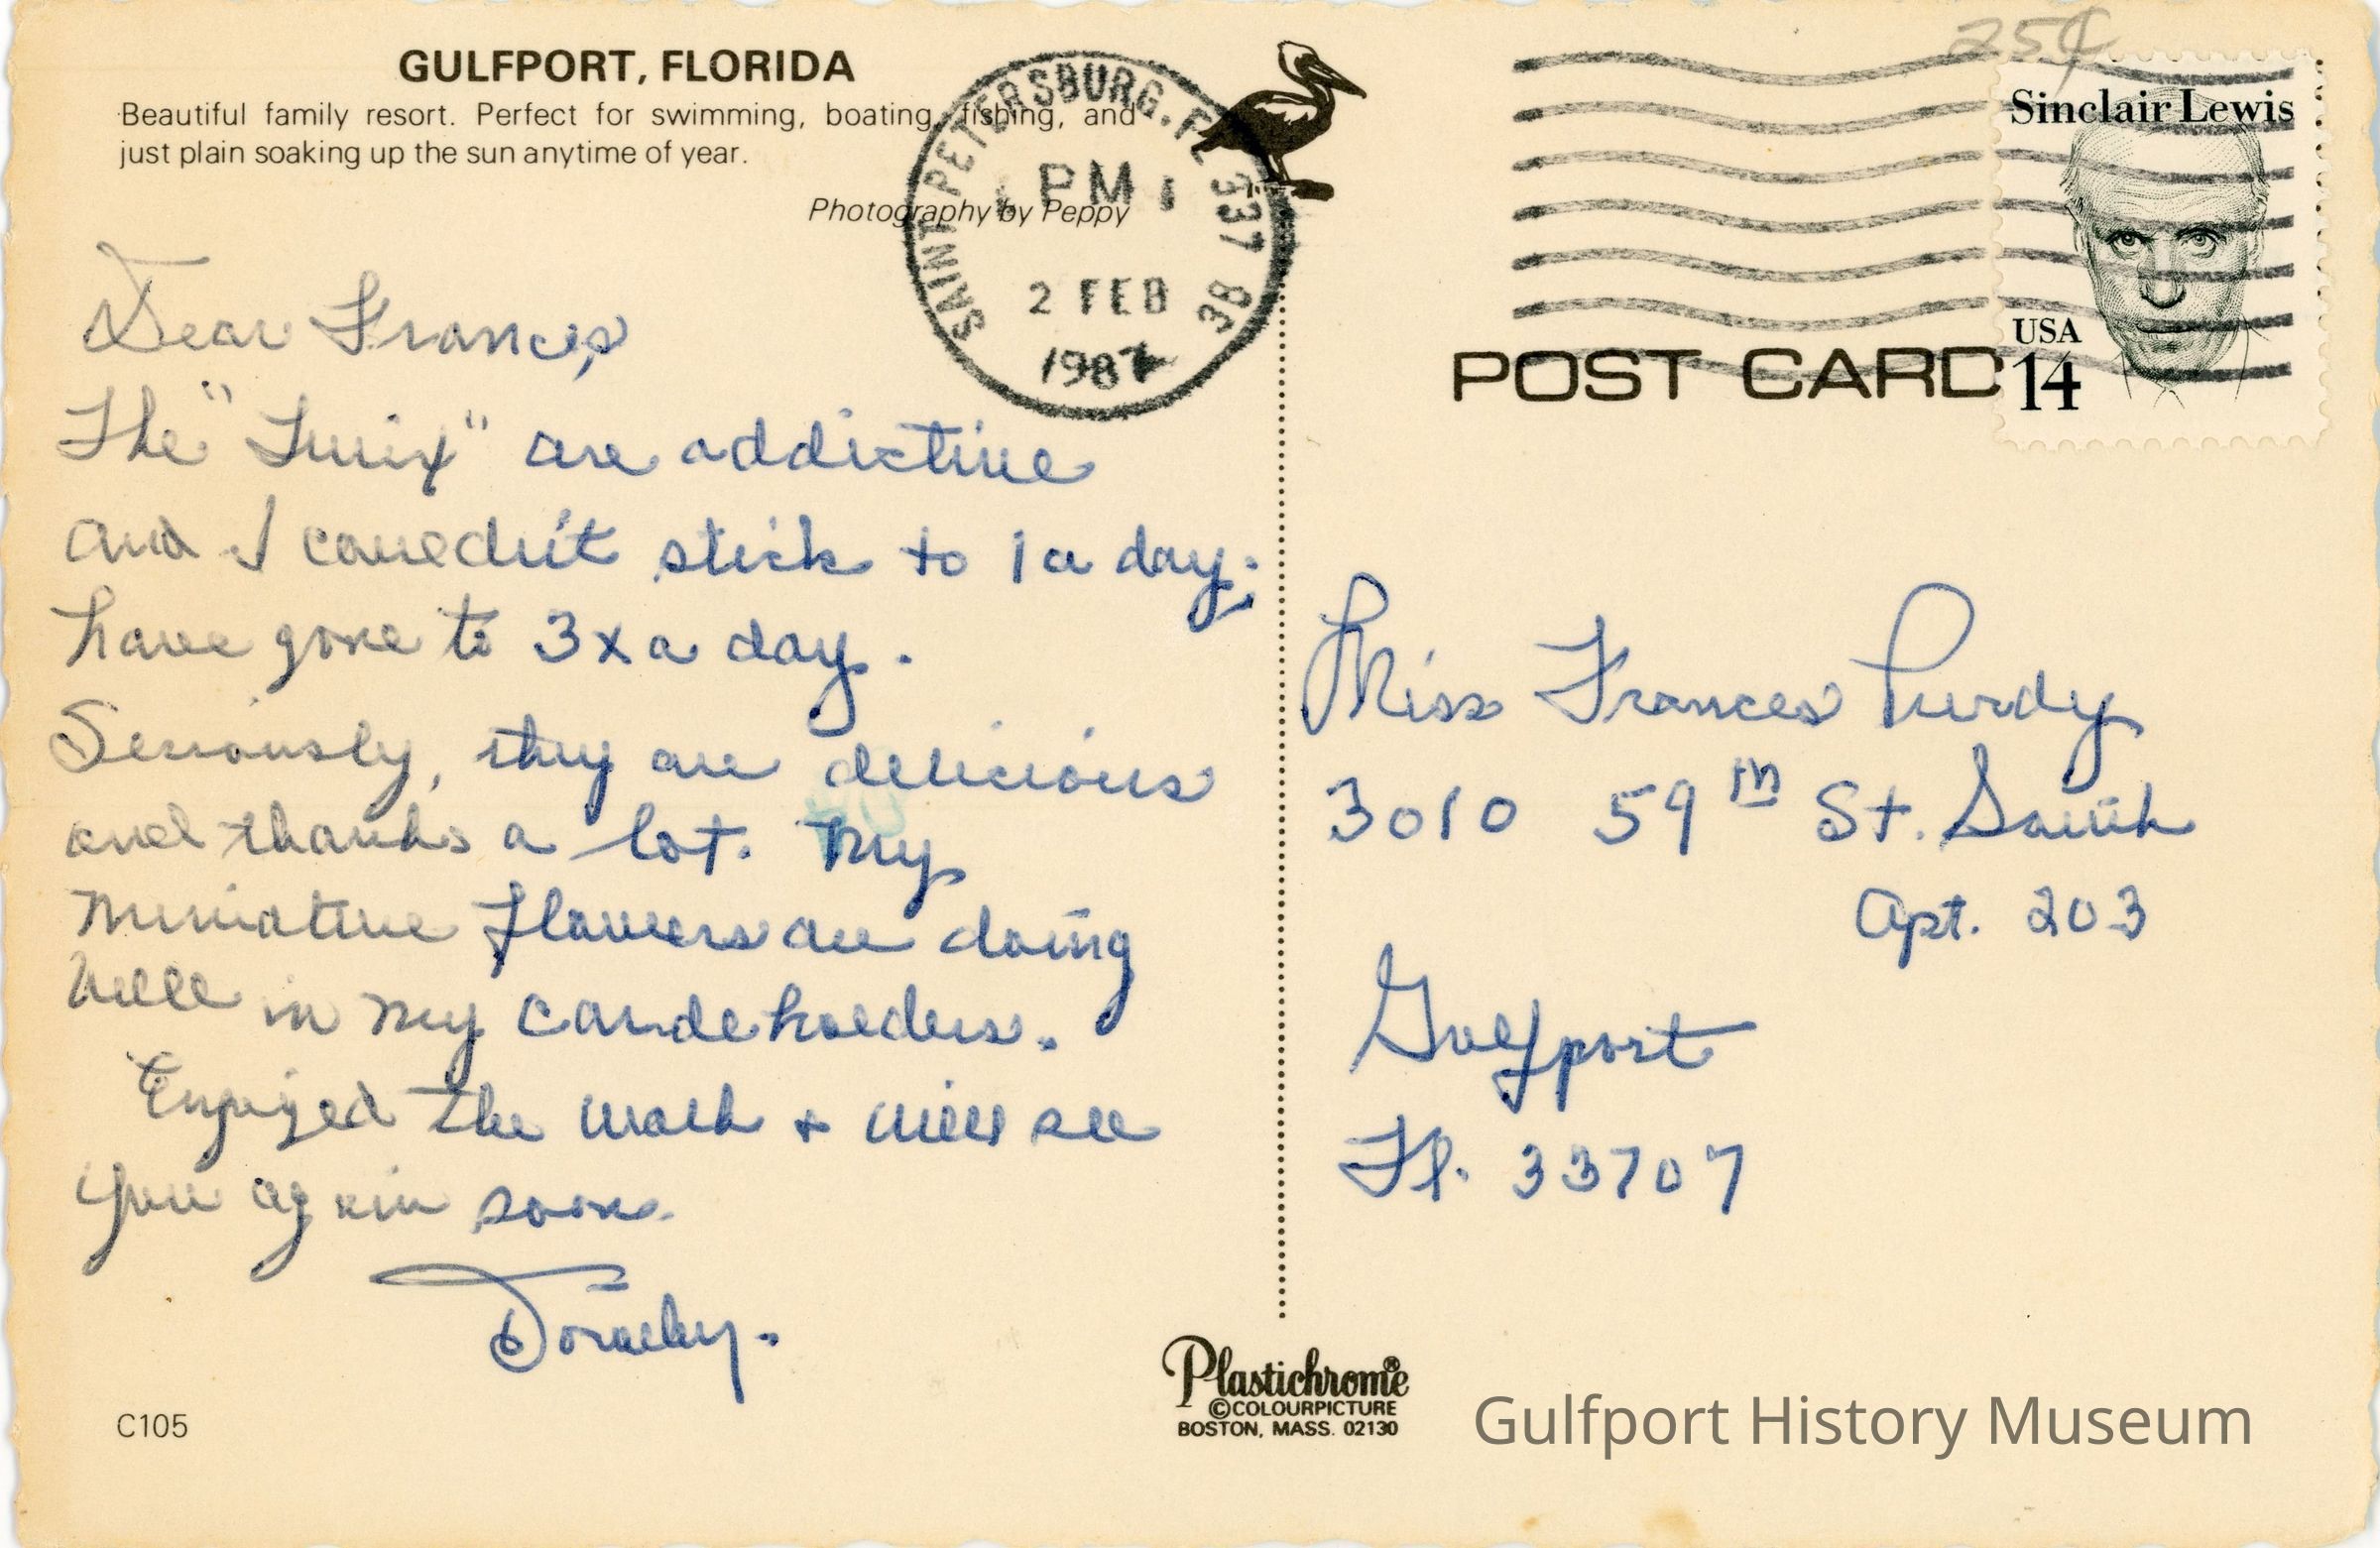 GULFPORT, FLORIDA
Beautiful family resort. Perfect for swimming, boating, fishing, and
just plain soaking up the sun anytime of year.
Photography by Peppy
Dear Frances,
The "Twix" are addictive
and I couldn't stick to 1 a day;
have gone to 3 x a day.
Seriously, they are delicious
and thanks a lot. My
miniature flowers are doing
well in my candeholders.
Enjoyed the walk + will see
you again soon.
Dorothy.
C105
SAINT PETERSBURG, FL 337 38
PM
2 FEB
1987
25¢
Sinclair Lewis
USA
14
POST CARD
Miss Frances Purdy
3010 59th St. South
Apt. 203
Gulfport
Fl. 33707
Plastichrome®
©COLOURPICTURE
BOSTON, MASS. 02130
Gulfport History Museum